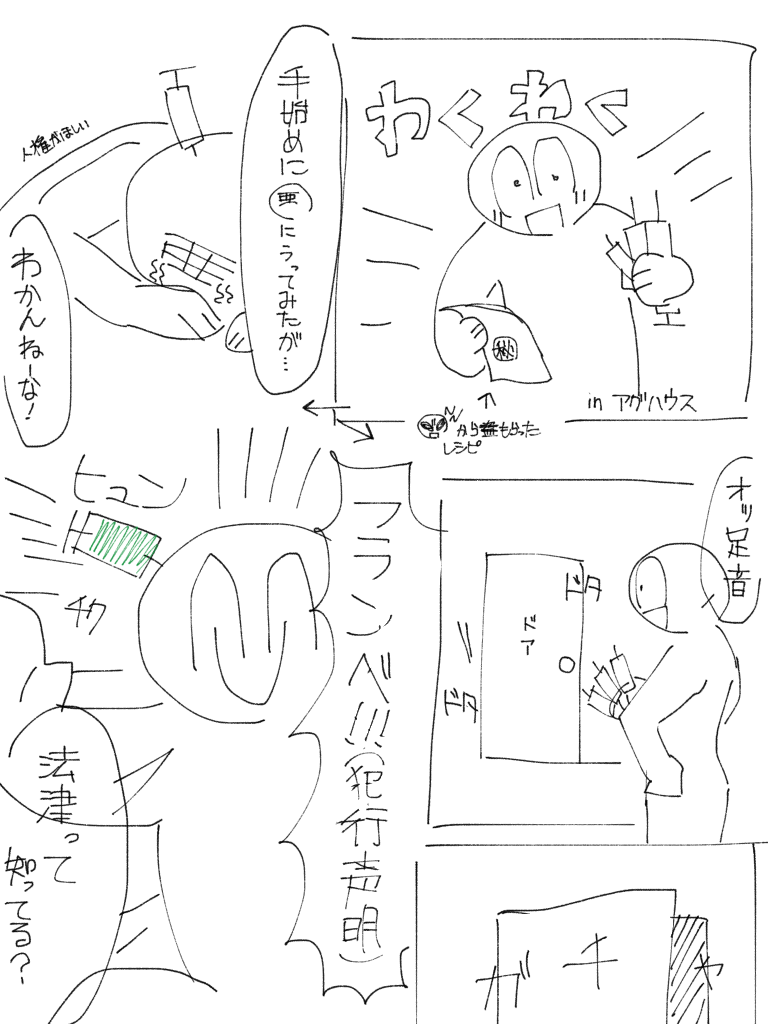 わくわく
in アガハウス
から盗もらった
レシピ
手始めに
亜にうってみたが…
人権がほしい
わかんねーな!
オッ足音
ドタ
ドア
ドタ
ガキャ
フランベ!!!(犯行声明)
ヒュン
チク
法津って
知ってる?